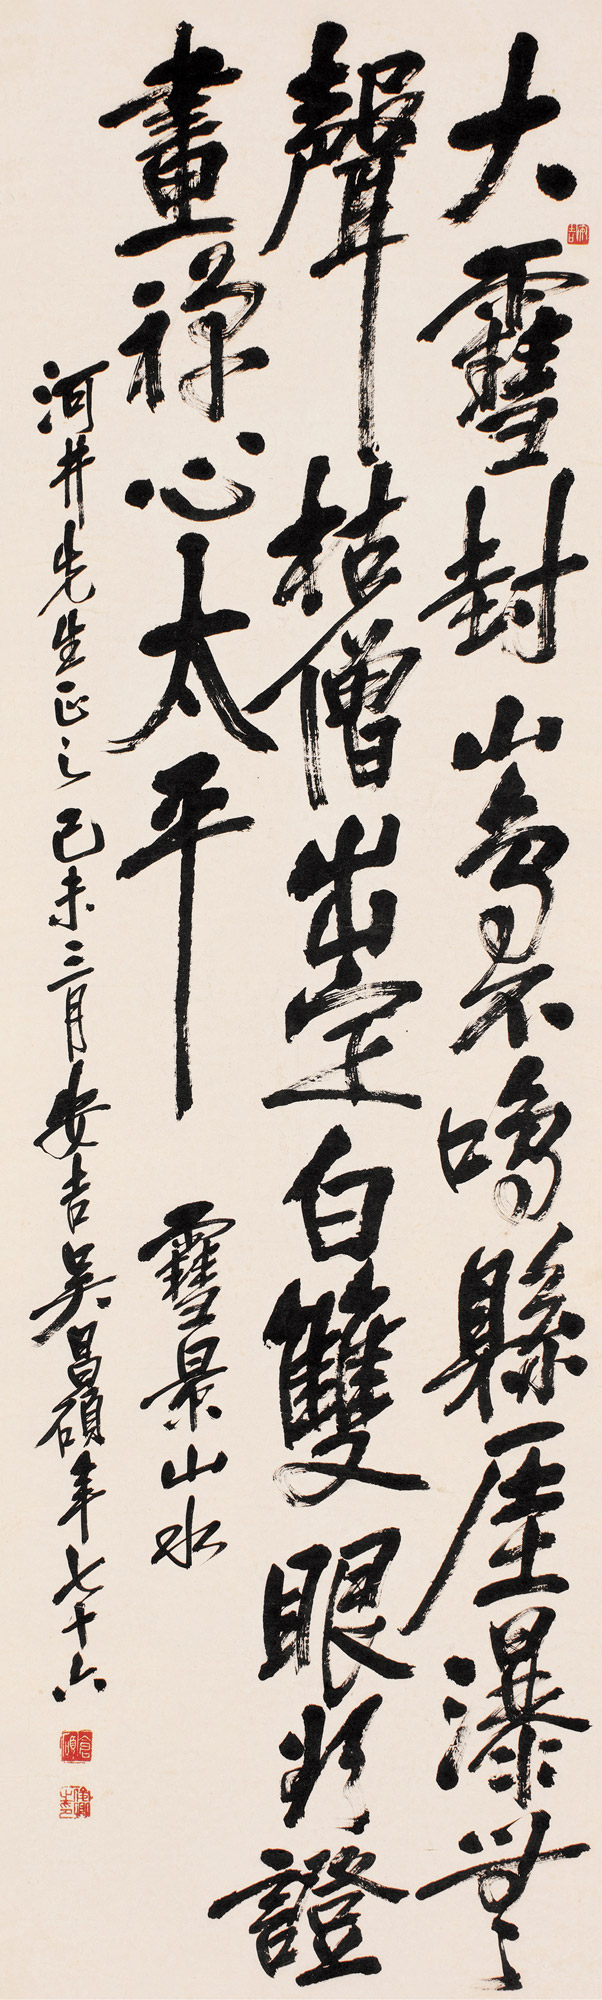 大雪封山鳥不鳴縣厓瀑無
聲枯僧出定白雙眼料證
畫禪心太平
雪景山水
河井先生正之己未三月安吉吳昌碩年七十六
倉碩
俊卿之印